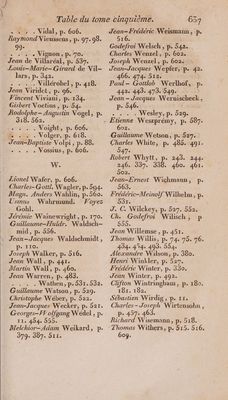 Table du tome cinquième. 657
. . . . Vidal, p. 606.
Raymond Vieussens, p. 97. 98.
99.
. . . . Vignon, p. 70.
Jean de Villaréal, p. 537.
Louis-Marie-Girard de Vil-
lars, p. 342.
. . . . Villérobel, p. 418.
Jean Viridet, p. 96.
Vincent Viviani, p. 134.
Gisbert Voetius, p. 54.
Rodolphe-Augustin Vogel, p.
318. 562.
. . . . Voight, p. 606.
. . . . Volger, p. 618.
Jean-Baptiste Volpi, p. 88.
. . . . Vossius, p. 606.
W.
Lionel Wafer, p. 606.
Charles-Gottl. Wagler, p. 594.
Magn. Anders Wahlin, p. 560.
Usmus Wahrmund. Voyez
Gohl.
Jérémie Wainewright, p. 170.
Guillaume-Huldr. Waldsch-
mid, p. 556.
Jean-Jacques Waldschmidt,
p. 110.
Joseph Walker, p. 516.
Jean Wall, p. 441.
Martin Wall, p. 460.
Jean Warren, p. 483.
. . . . Wathen, p. 531. 532.
Guillaume Watson, p. 529.
Christophe Wéber, p. 522.
Jean-Jacques Wecker, p. 521.
Georges-Wolfgang Wédel, p.
11. 454. 555.
Melchior-Adam Weikard, p.
379. 387. 511.
Jean-Frédéric Weismann, p.
516.
Godefroi Welsch, p. 542.
Charles Wenzel, p. 602.
Joseph Wenzel, p. 602.
Jean-Jacques Wepfer, p. 42.
466. 474. 512.
Paul-Gottlob Werlhof, p.
442. 443. 473. 549.
Jean-Jacques Wernischeck,
p. 546.
. . . . Wesley, p. 529.
Etienne Weszprémy, p. 587.
602.
Guillaume Wetson, p. 527.
Charles White, p. 485. 491.
547.
Robert Whytt, p. 243. 244.
246. 337. 338. 460. 461.
502.
Jean-Ernest Wichmann, p.
563.
Frédéric-Meinolf Wilhelm, p.
531.
J. C. Wilckey, p. 527. 552.
Ch. Godefroi Wilisch, p.
555.
Jean Willemse, p. 451.
Thomas Willis, p. 74. 75. 76.
434. 474. 493. 554.
Alexandre Wilson, p. 380.
Henri Winkler, p. 527.
Frédéric Winter, p. 330.
Jean Winter, p. 492.
Clifton Wintringham, p. 180.
181. 182.
Sébastien Wirdig, p. 11.
Charles-Joseph Wirtensohn,
p. 457. 463.
Richard Wisemann, p. 518.
Thomas Withers, p. 515. 516.
609.